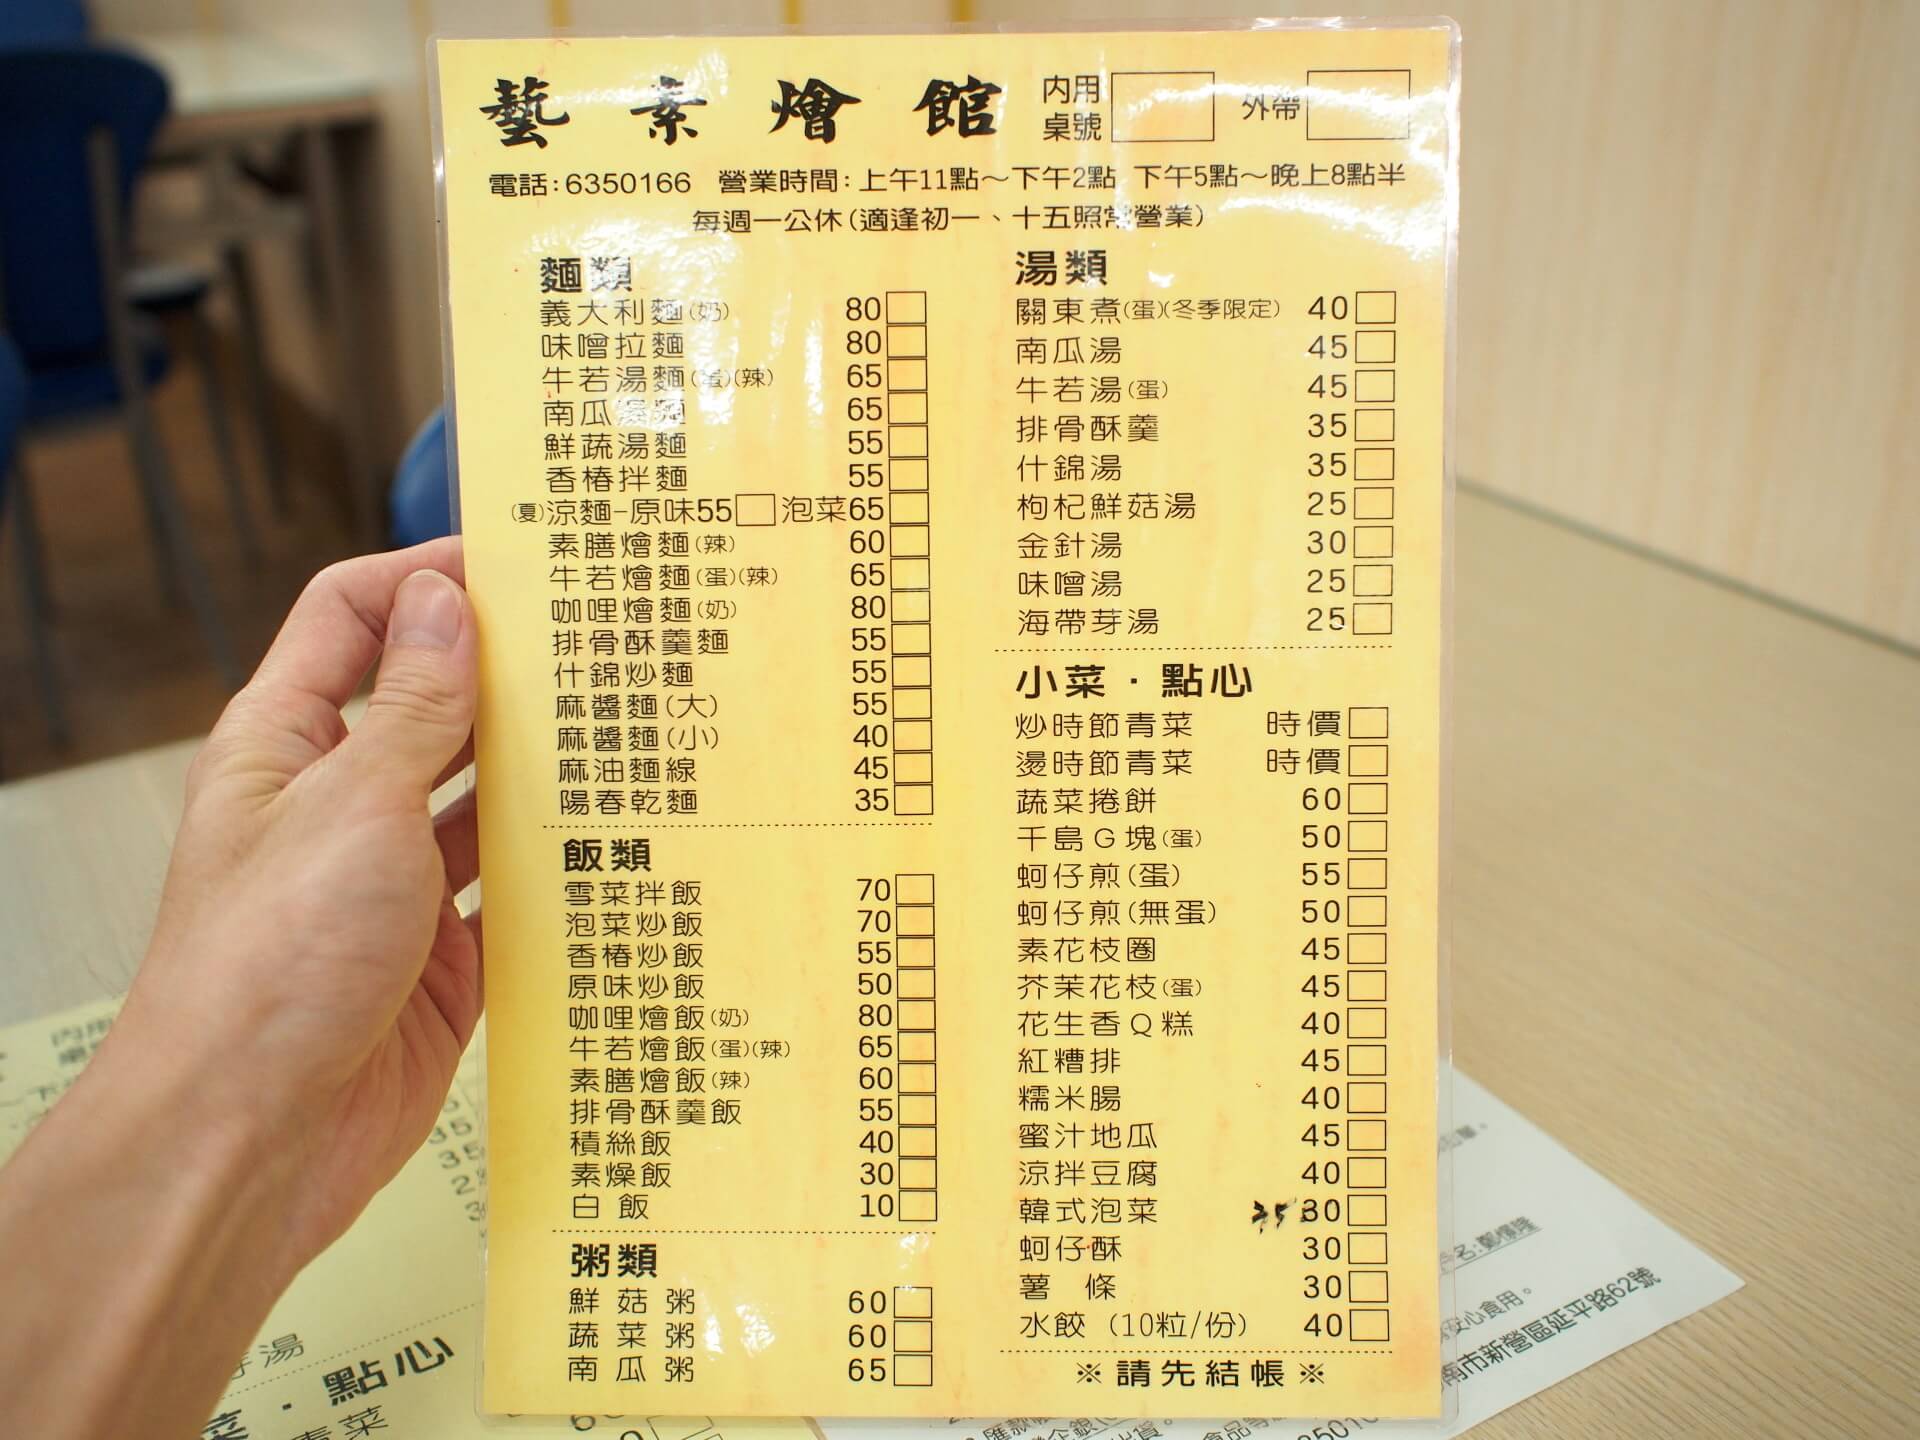 藝素燴館
內用
桌號
外帶
電話:6350166 營業時間:上午11點～下午2點 下午5點～晚上8點半
每週一公休(適逢初一、十五照常營業)
麵類
義大利麵(奶) 80
味噌拉麵 80
牛若湯麵(蛋)(辣) 65
南瓜湯麵 65
鮮蔬湯麵 55
香椿拌麵 55
(夏)涼麵-原味55 泡菜65
素膳燴麵(辣) 60
牛若燴麵(蛋)(辣) 65
咖哩燴麵(奶) 80
排骨酥羹麵 55
什錦炒麵 55
麻醬麵(大) 55
麻醬麵(小) 40
麻油麵線 45
陽春乾麵 35
飯類
雪菜拌飯 70
泡菜炒飯 70
香椿炒飯 55
原味炒飯 50
咖哩燴飯(奶) 80
牛若燴飯(蛋)(辣) 65
素膳燴飯(辣) 60
排骨酥羹飯 55
積絲飯 40
素燥飯 30
白飯 10
粥類
鮮菇粥 60
蔬菜粥 60
南瓜粥 65
湯類
關東煮(蛋)(冬季限定) 40
南瓜湯 45
牛若湯(蛋) 45
排骨酥羹 35
什錦湯 35
枸杞鮮菇湯 25
金針湯 30
味噌湯 25
海帶芽湯 25
小菜·點心
炒時節青菜 時價
燙時節青菜 時價
蔬菜捲餅 60
千島G塊(蛋) 50
蚵仔煎(蛋) 55
蚵仔煎(無蛋) 50
素花枝圈 45
芥茉花枝(蛋) 45
花生香Q糕 40
紅糟排 45
糯米腸 40
蜜汁地瓜 45
涼拌豆腐 40
韓式泡菜 35 30
蚵仔酥 30
薯條 30
水餃 (10粒/份) 40
※請先結帳※
湯
菜·點心
青菜
名:鄭
安心食用。
南市新營區延平路62號
匯款